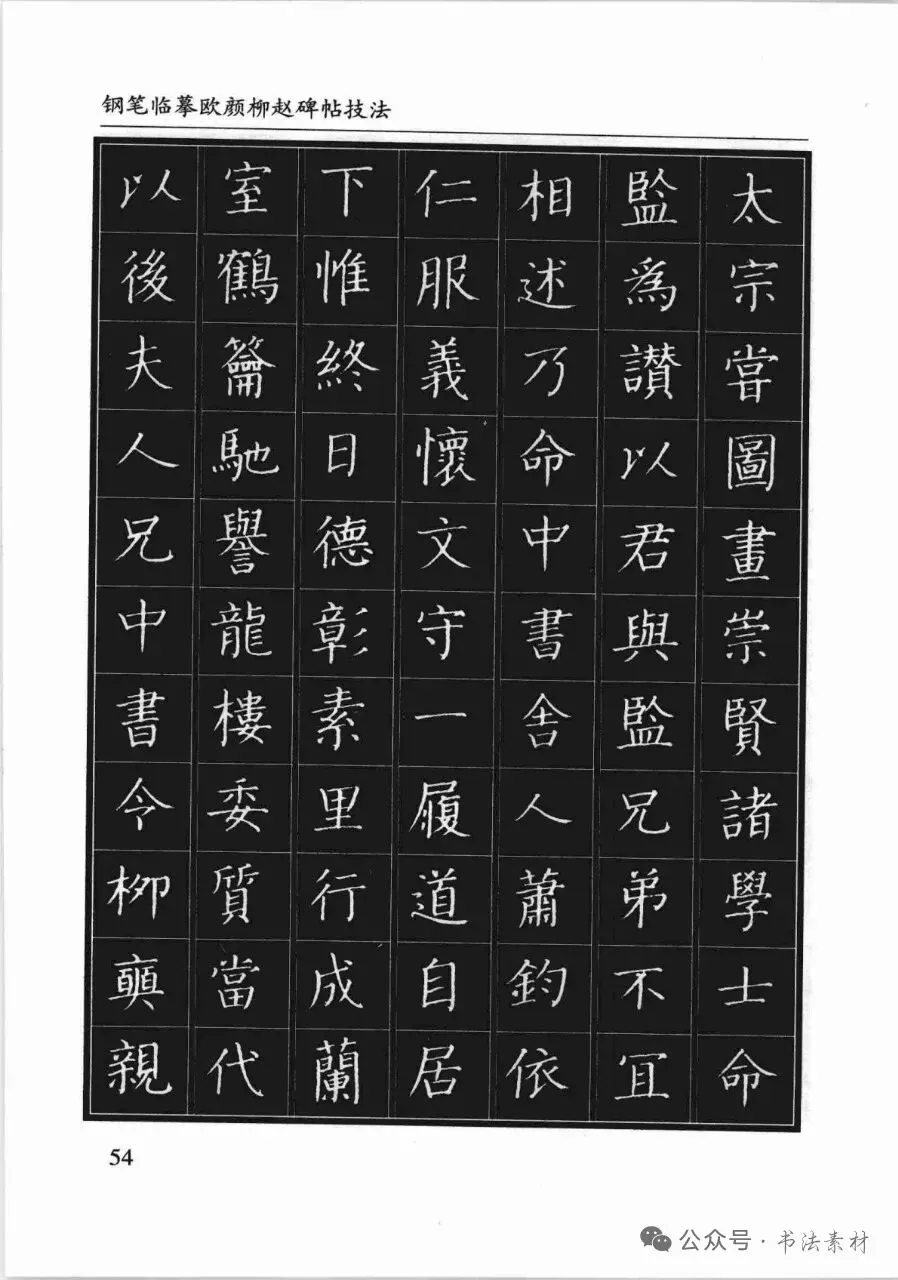 钢笔临摹欧颜柳赵碑帖技法
太宗嘗圖畫崇賢諸學士命
監爲讃以君與監兄弟不冝
相述乃命中書舎人蕭鈞依
仁服義懷文守一履道自居
下惟終日德彰素里行成蘭
室鶴籥馳譽龍樓委質當代
以後夫人兄中書令柳奭親
54
公众号·书法素材